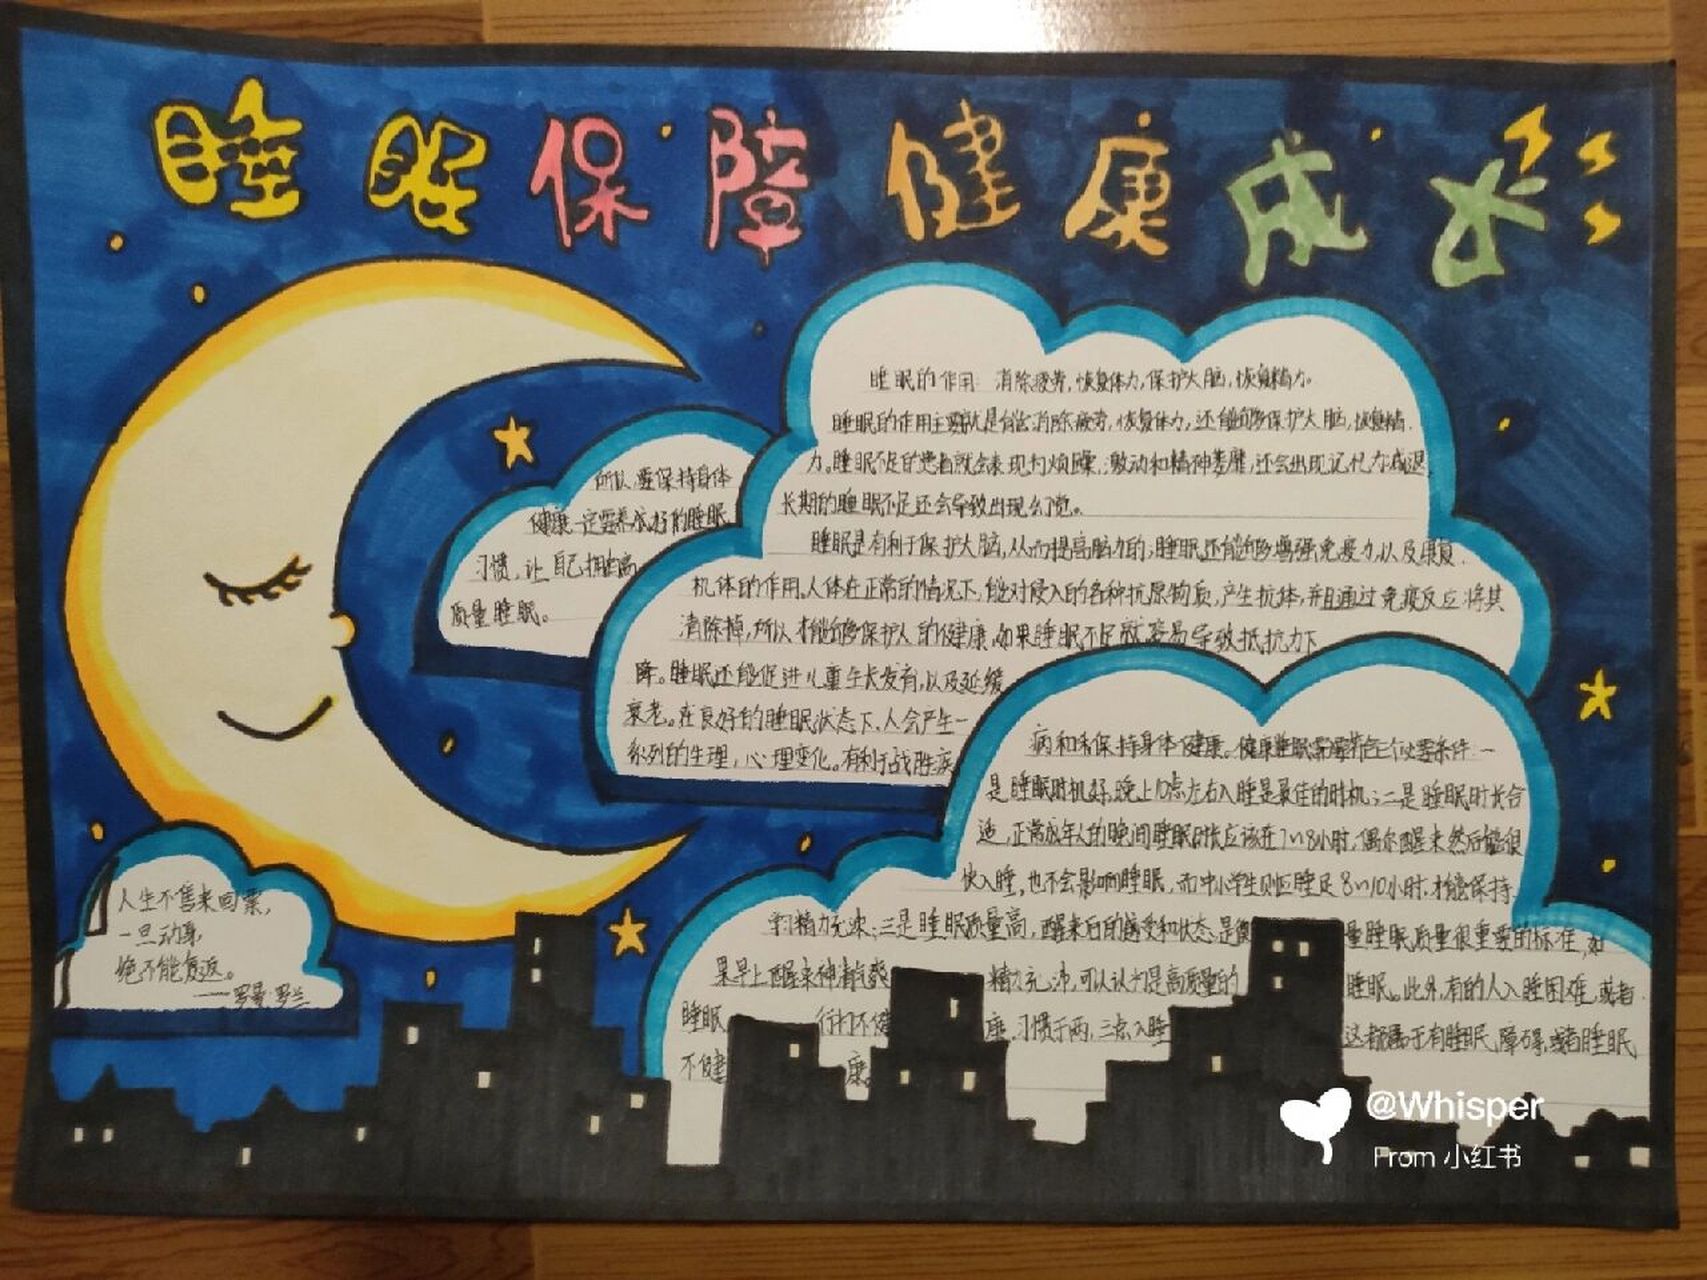 睡眠保障健康成长
睡眠的作用 消除疲劳,恢复体力,保护大脑,恢复精力。
睡眠的作用主要就是能够消除疲劳,恢复体力,还能够保护大脑,恢复精
力。睡眠不足的患者就会表现为烦躁、激动和精神萎靡,还会出现记忆力减退,
长期的睡眠不足还会导致出现幻觉。
睡眠是有利于保护大脑,从而提高脑力的,睡眠还能够增强免疫力,以及康复
机体的作用。人体在正常的情况下,能对侵入的各种抗原物质,产生抗体,并且通过免疫反应将其
清除掉,所以才能够保护人的健康。如果睡眠不足就容易导致抵抗力下
降。睡眠还能促进儿童生长发育,以及延缓
衰老。在良好的睡眠状态下,人会产生一
系列的生理,心理变化。有利于战胜疾
病和和保持身体健康。健康睡眠需要符合三个必要条件:一
是睡眠时机好,晚上10点左右入睡是最佳的时机;二是睡眠时长合
适,正常成年人的晚间睡眠时长应该在7~8小时,偶尔醒来然后能很
快入睡,也不会影响睡眠,而中小学生则应睡足8~10小时,才能保持
学习精力充沛;三是睡眠质量高,醒来后的感受和状态是 量睡眠质量很重要的标准,如
果早上醒来神清气爽 精力充沛,可以认为是高质量的 睡眠。此外,有的人入睡困难,或者
睡眠 不健 康,习惯于两,三点入睡 这都属于有睡眠障碍,或者睡眠
不健 康。
所以,要保持身体
健康一定要养成好的睡眠
习惯,让自己拥有高
质量睡眠。
人生不售来回票,
一旦动身,
绝不能复返。
——罗曼·罗兰
@Whisper
From 小红书